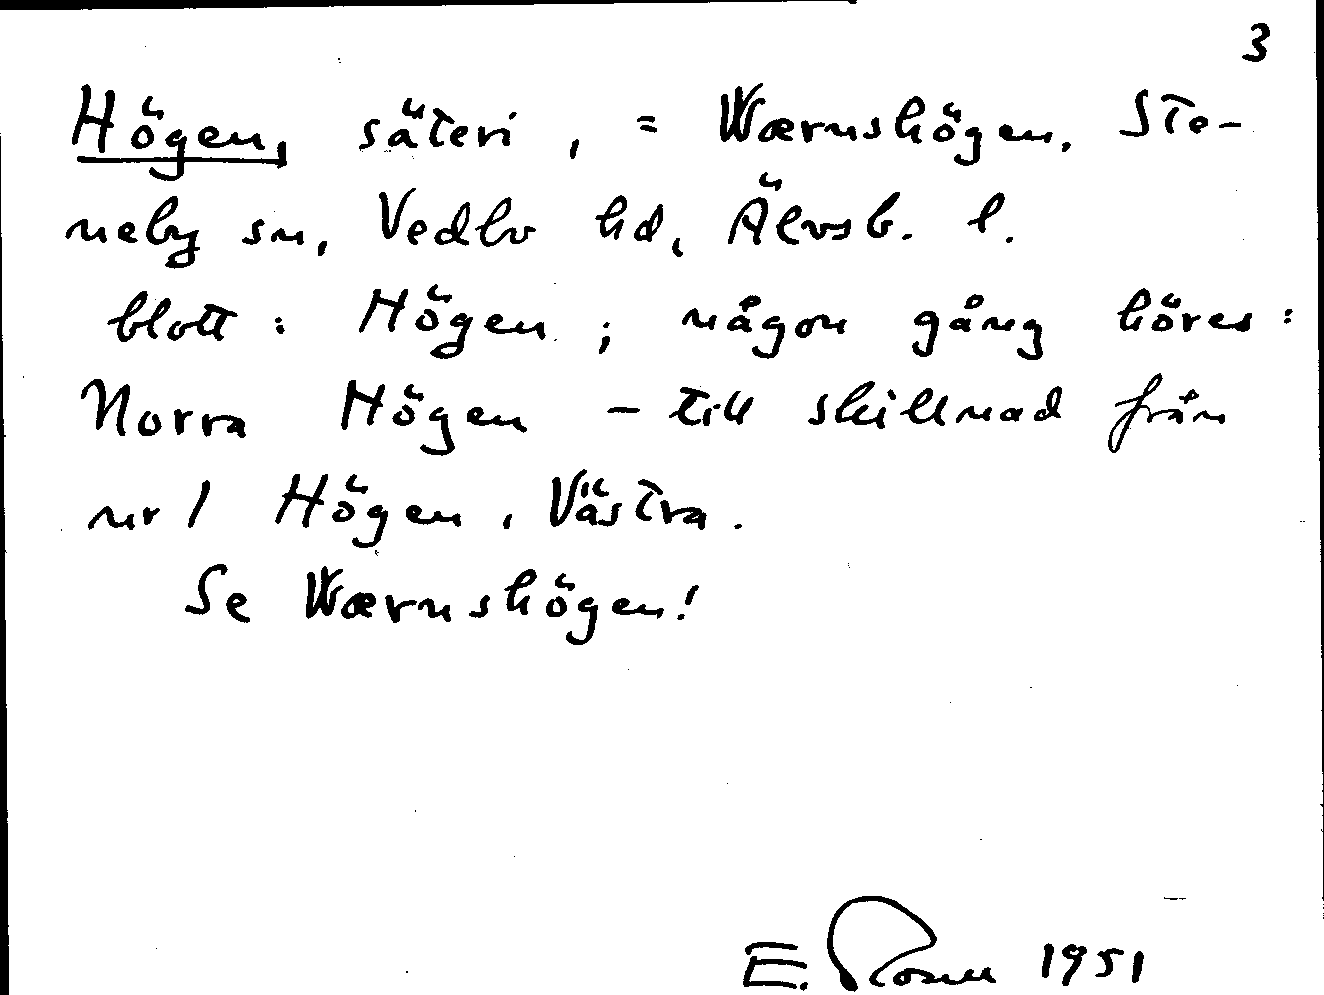 3
Högen, säteri, = Wærnshögen. Ste-
neby sn, Vedbo hd, Älvsb. l.
blott: Högen; någon gång höres:
Norra Högen – till skillnad från
nr 1 Högen, Västra.
Se Wærnshögen!
E. Rosen 1951